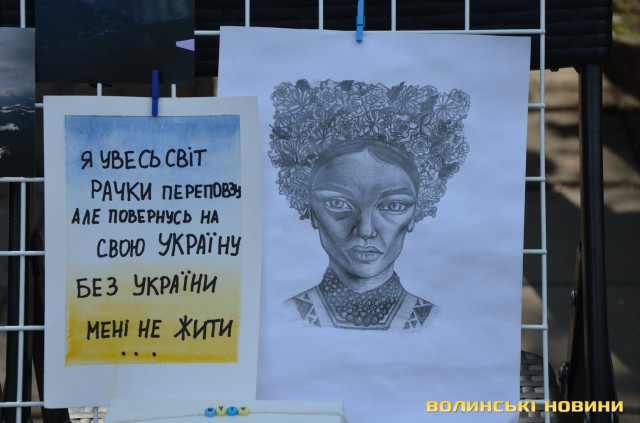 Я УВЕСЬ СВІТ
РАЧКИ ПЕРЕПОВЗУ
АЛЕ ПОВЕРНУСЬ НА
СВОЮ УКРАЇНУ
БЕЗ УКРАЇНИ
МЕНІ НЕ ЖИТИ
...
ВОЛИНСЬКІ НОВИНИ